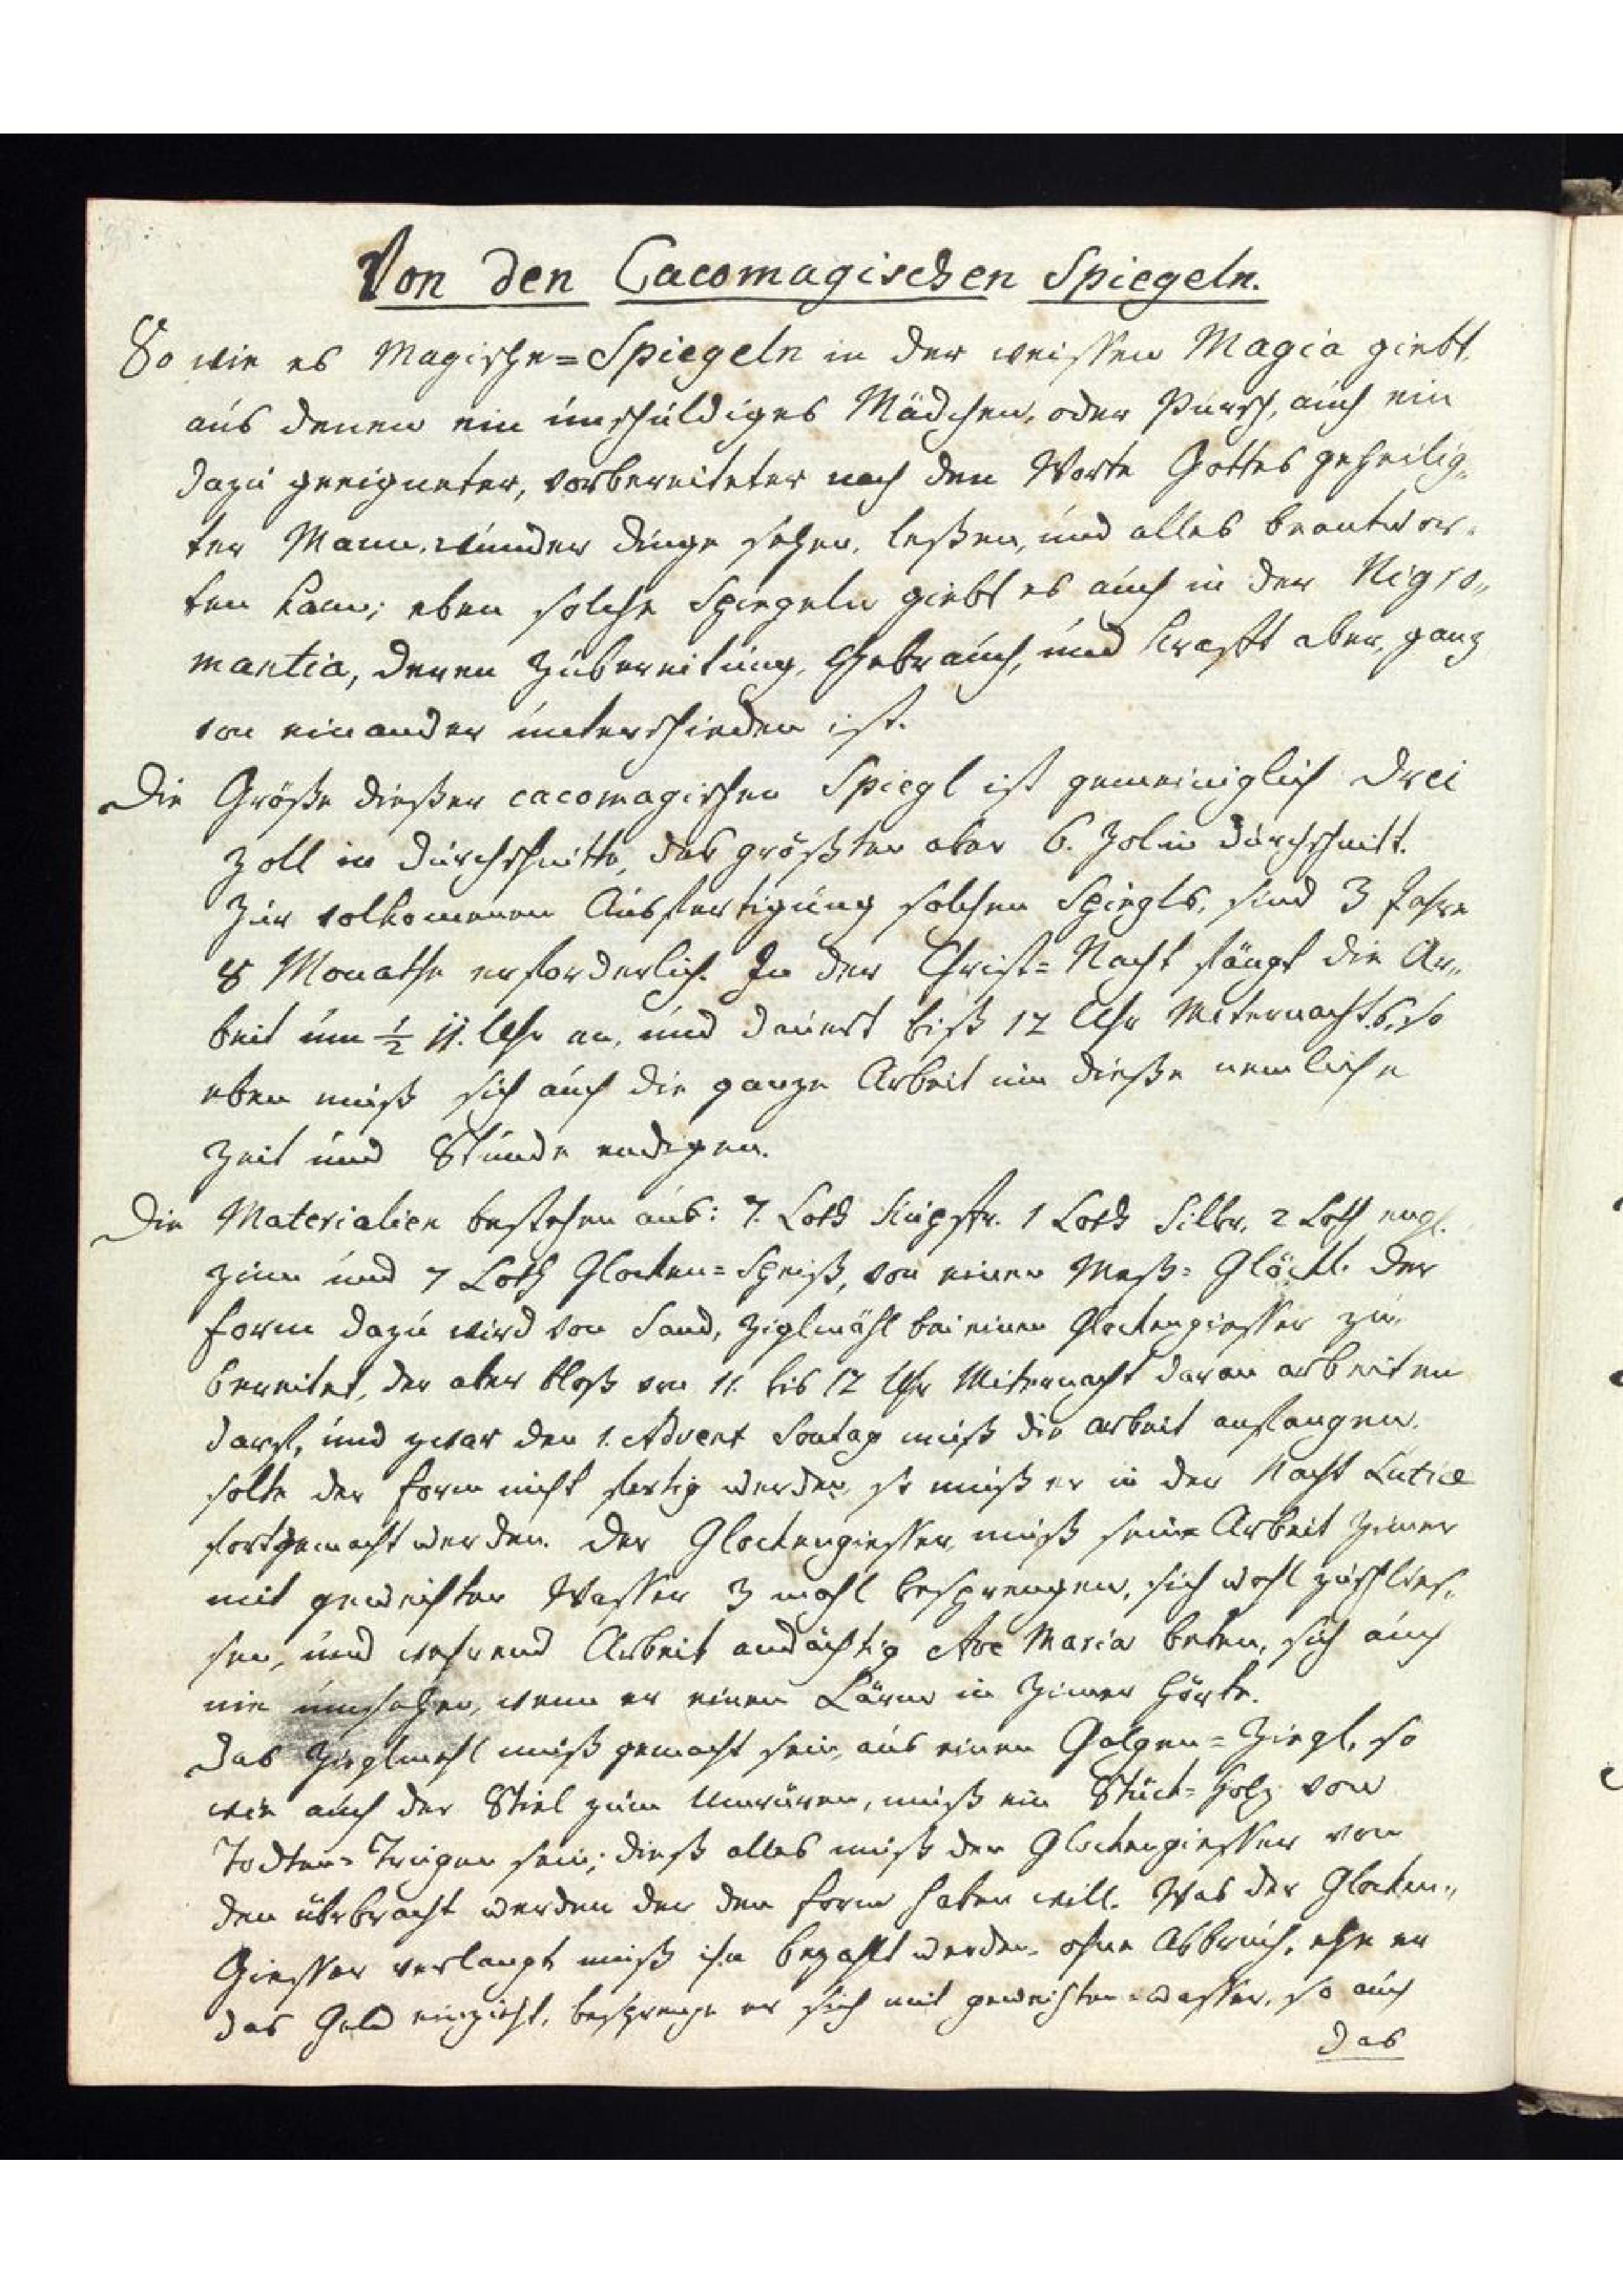 Von den Cacomagischen Spiegeln.
So wie es Magische=Spiegeln in der weissen Magia giebt,
aus denen ein unschuldiges Mädchen, oder Pursch, auch ein
dazu geeigneter, vorbereiteter nach den Worte Gottes geheilig„
ter Mann, wunder dinge sehen, leßen, und alles beantwor„
ten kann; eben solche Spiegeln giebt es auch in der Nigro„
mantia, deren Zubereitung, Gebrauch, und Krafft aber, ganz
von einander unterschieden ist.
Die Größe dießer cacomagischen Spiegl ist gemeiniglich drei
Zoll in durchschnitte, des größten aber 6. Zol in durchschnitt.
Zur volkomenen Ausfertigung solchen Spiegls, sind 3 Jahre
8 Monathe erforderlich. In der Christ=Nacht fängt die Ar„
beit um ½ 11. Uhr an, und dauert biß 12 Uhr Miternachts, so
eben muß sich auch die ganze Arbeit um dieße nemliche
Zeit und Stunde endigen.
Die Materialien bestehen aus: 7. Loth Kupffr. 1 Loth Silbr. 2 Loth engl.
Zinn und 7 Loth Glocken=Speiß, von einen Meß=Glöckl. Der
form dazu wird von Sand, Ziglmähl bei einen Glockengiesser zu„
bereitet, der aber bloß von 11. bis 12 Uhr Miternacht daran arbeiten
darf, und zwar den 1. Advent Sontag muß die arbeit anfangen.
solte der form nicht fertig werden, so muß er in der Nacht Lutiæ
fortgemacht werden. Der Glockengiesser muß seine Arbeit Zimer
mit geweichten Wasser 3 mahl besprengen, sich wohl zuschlies„
sen, und wehrend Arbeit andächtig Ave Maria beten, sich auch
nie umsehen, wenn er einen Lärm in Zimer hörte.
Das Zieglmehl muß gemacht sein, aus einen Galgen=Ziegl, so
wie auch der Stiel zum Umrüren, muß ein Stück=Holz von
Todten=Trugen sein; dieß alles muß den Glockengiesser von
den übrbracht werden der den form haben will. Was der Glocken„
Giesser verlangt muß ihm bezahlt werden, ohne Abbruch, ehe er
das Geld einzieht, besprenge er sich mit geweichten=wasser, so auch
das